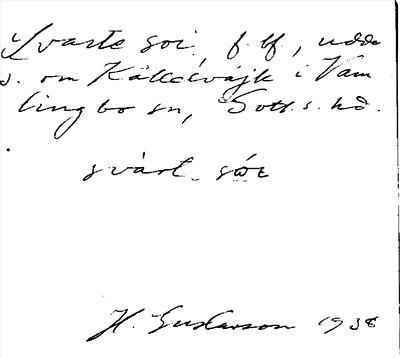 Svarte soi, f. lf, udde
s. om Källelvájk i Vam
lingbo sn, Gotl. s. hd.
svárt sǿɛ
H. Gustavson 1938